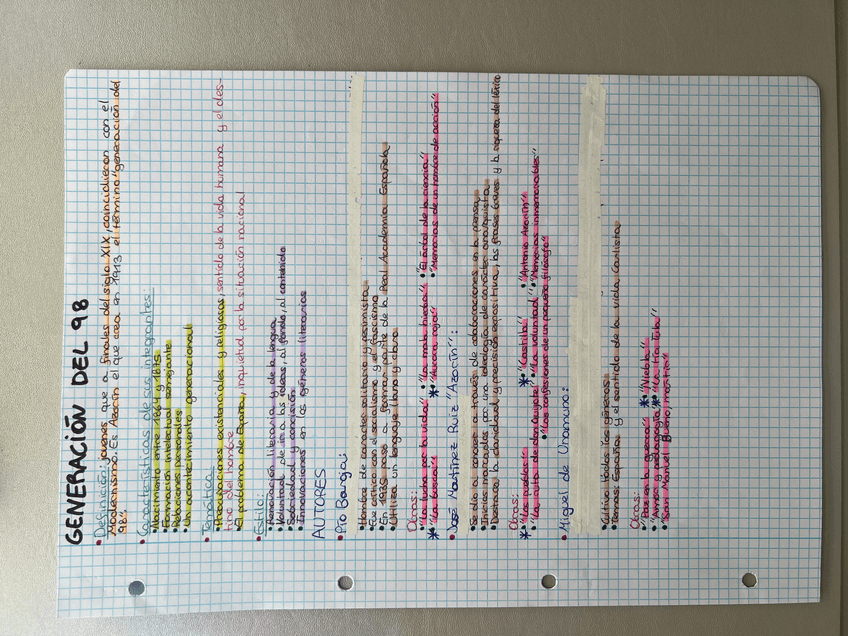 GENERACIÓN DEL 98
• Definición: jóvenes que a finales del siglo XIX, coincidieron con el
Modernismo. Es Azorín el que crea en 1913 el término "generación del
98".
• Características de sus integrantes:
• Nacimiento entre 1864 y 1875
• Formación intelectual semejante
• Relaciones personales
• Un acontecimiento generacional
• Temática:
• Preocupaciones existenciales y religiosas sentido de la vida humana y el des-
tino del hombre
• El problema de España, inquietud por la situación nacional
• Estilo:
• Renovación literaria y de la lengua
• Voluntad de ir a las ideas, al fondo, al contenido
• Sobriedad y concisión
• Innovaciones en los géneros literarios
AUTORES
• Pío Baroja:
• Hombre de carácter solitario y pesimista
• Fue crítico con el socialismo y el fascismo
• En 1935 pasó a formar parte de la Real Academia Española
• Utiliza un lenguaje llano y claro
Obras:
* • "La lucha por la vida" • "La mala hierba" • "El árbol de la ciencia"
* • "La busca" * • "Aurora roja" • "Memorias de un hombre de acción"
• José Martínez Ruiz "Azorín":
• Se dio a conocer a través de colaboraciones en la prensa
• Inicios marcados por una ideología de carácter anarquista
• Destaca la claridad y precisión expositiva, las frases breves y la riqueza del léxico
Obras:
* • "Los pueblos" * • "Castilla" • "Antonio Azorín"
• "La ruta de don Quijote" • "La voluntad" • "Memorias inmemorables"
• "Las confesiones de un pequeño filósofo"
• Miguel de Unamuno:
• Cultivó todos los géneros
• Temas: España y el sentido de la vida Carlista
Obras:
• "Paz en la guerra" * • "Niebla"
• "Amor y pedagogía" * • "La tía Tula"
• "San Manuel Bueno, mártir"